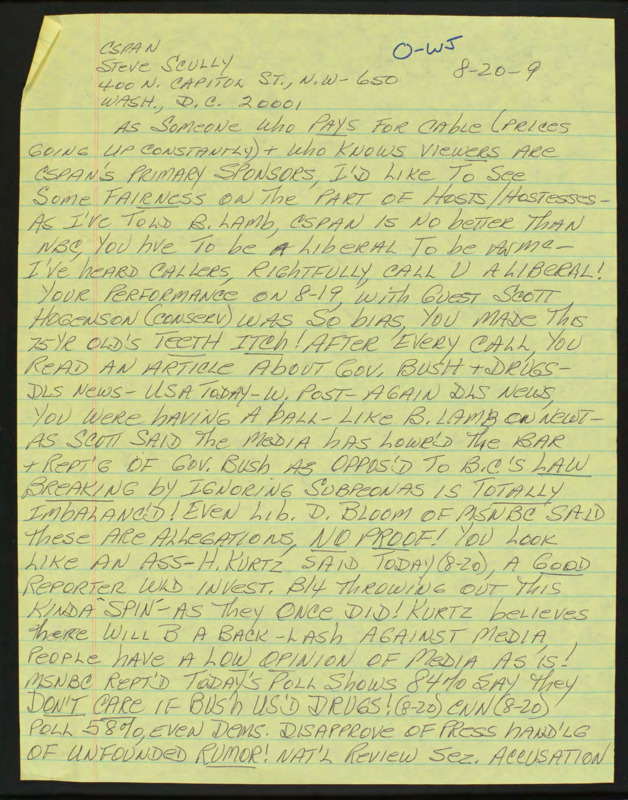 CSPAN
O-WJ
Steve Scully
8-20-9
400 N. CAPITOL ST., N.W-650
WASH., D.C. 20001
AS SOMEONE WHO PAYS FOR CABLE (PRICES
GOING UP CONSTANTLY) + WHO KNOWS VIEWERS ARE
CSPAN'S PRIMARY SPONSORS, I'D LIKE TO SEE
SOME FAIRNESS ON THE PART OF HOSTS/HOSTESSES-
AS I'VE TOLD B. LAMB, CSPAN IS NO BETTER THAN
NBC, YOU HVE TO be A LIBERAL TO be
I'VE HEARD CALLERS, RIGHTFULLY, CALL U A LIBERAL!
YOUR PERFORMANCE ON 8-19, WITH GUEST SCOTT
HOGENSON (CONSERV) WAS SO BIAS, YOU MADE THIS
75 YR OLD'S TEETH ITCH! AFTER EVERY CALL, YOU
READ AN ARTICLE ABOUT GOV. BUSH + DRUGS-
DLS NEWS-USA TODAY-W. POST-AGAIN DLS NEWS,
YOU WERE HAVING A BALL-LIKE B. LAMB ON NEWT-
AS SCOTT SAID THE MEDIA HAS LOWR'D THE BAR
+ REPT'G OF GOV. BUSH AS OPPOS'D TO B.C'S LAW
BREAKING by IGNORING SUBPEONAS IS TOTALLY
IMBALANC'D! EVEN LIB. D. BLOOM OF MSNBC SAID
THESE ARE ALLEGATIONS, NO PROOF! YOU LOOK
LIKE AN ASS-H. KURTZ SAID TODAY (8-20), A GOOD
REPORTER WLD INVEST. B/4 THROWING OUT THIS
KINDA "SPIN"-AS THEY ONCE DID! KURTZ believes
there WILL B A BACK-LASH AGAINST MEDIA,
PEOPLE HAVE A LOW OPINION OF MEDIA AS IS!
MSNBC REPT'D TODAY'S POLL SHOWS 84% SAY THEY
DON'T CARE IF BUSH US'D DRUGS! (8-20) CNN (8-20)
POLL 58%, EVEN DEMS. DISAPPROVE OF PRESS HAND'LG
OF UNFOUNDED RUMOR! NAT'L REVIEW SEZ. ACCUSATION